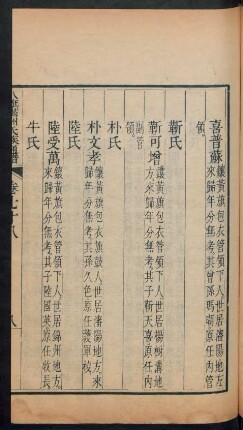 喜普蘇 鑲黃旗包衣管領下人世居瀋陽地方
來歸年分無考其曾孫瑪 原任內管
領
靳氏
靳可增 鑲黃旗包衣管領下人世居 地
方來歸年分無考其子靳天喜原任內
副管
領
朴氏
朴文孝 鑲黃旗包衣旗鼓人世居瀋陽地方來
歸年分無考其孫久色原任護軍校
陸氏
陸受萬 鑲黃旗包衣管領下人世居錦州地方
來歸年分無考其子陸國英原任牧長
牛氏
八旗滿洲氏族通譜 卷七十八 八